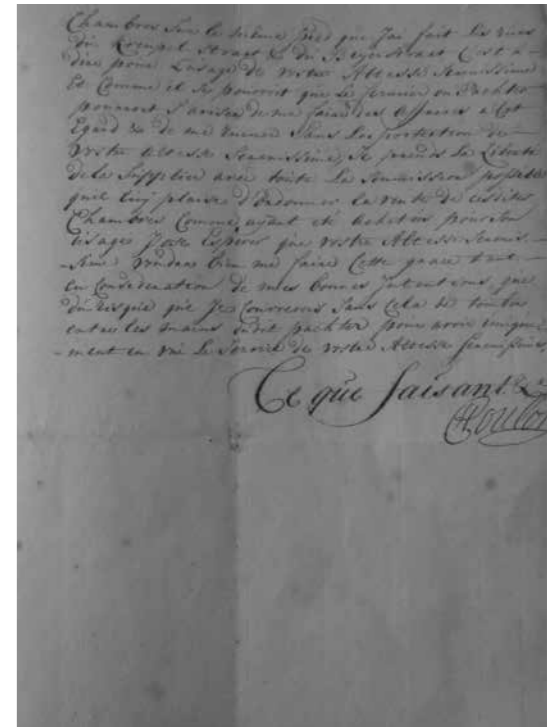 Chambres sur le même pied que J'ai fait les vins
du Krompel Straet & du Beyerstraet C'est a
dire pour L'usage de vostre Altesse Serenissime
Et Comme il se pourroit que le fermier ou Pachter
pourroit s'aviser de me faire des affaires a Cet
Egard & de me sans La protection de
vostre Altesse Serenissime, Je prends La Liberté
de la Supplier avec toute La Soumission possible
quel Luy plaise d'ordonner la vente de cesdites
Chambres Comme ayant eté achetés pour Son
usage, J'ose Esperer que vostre Altesse Sereniss-
-sime voudra bien me faire Cette grace tant
en Consideration de mes bonnes Intentions que
du risque que Je Courrerois Sans cela de tomber
entre les mains dudit pachter pour avoir unique
-ment en vue Le Service de vostre Altesse Serenissime,
Ce que faisant &a